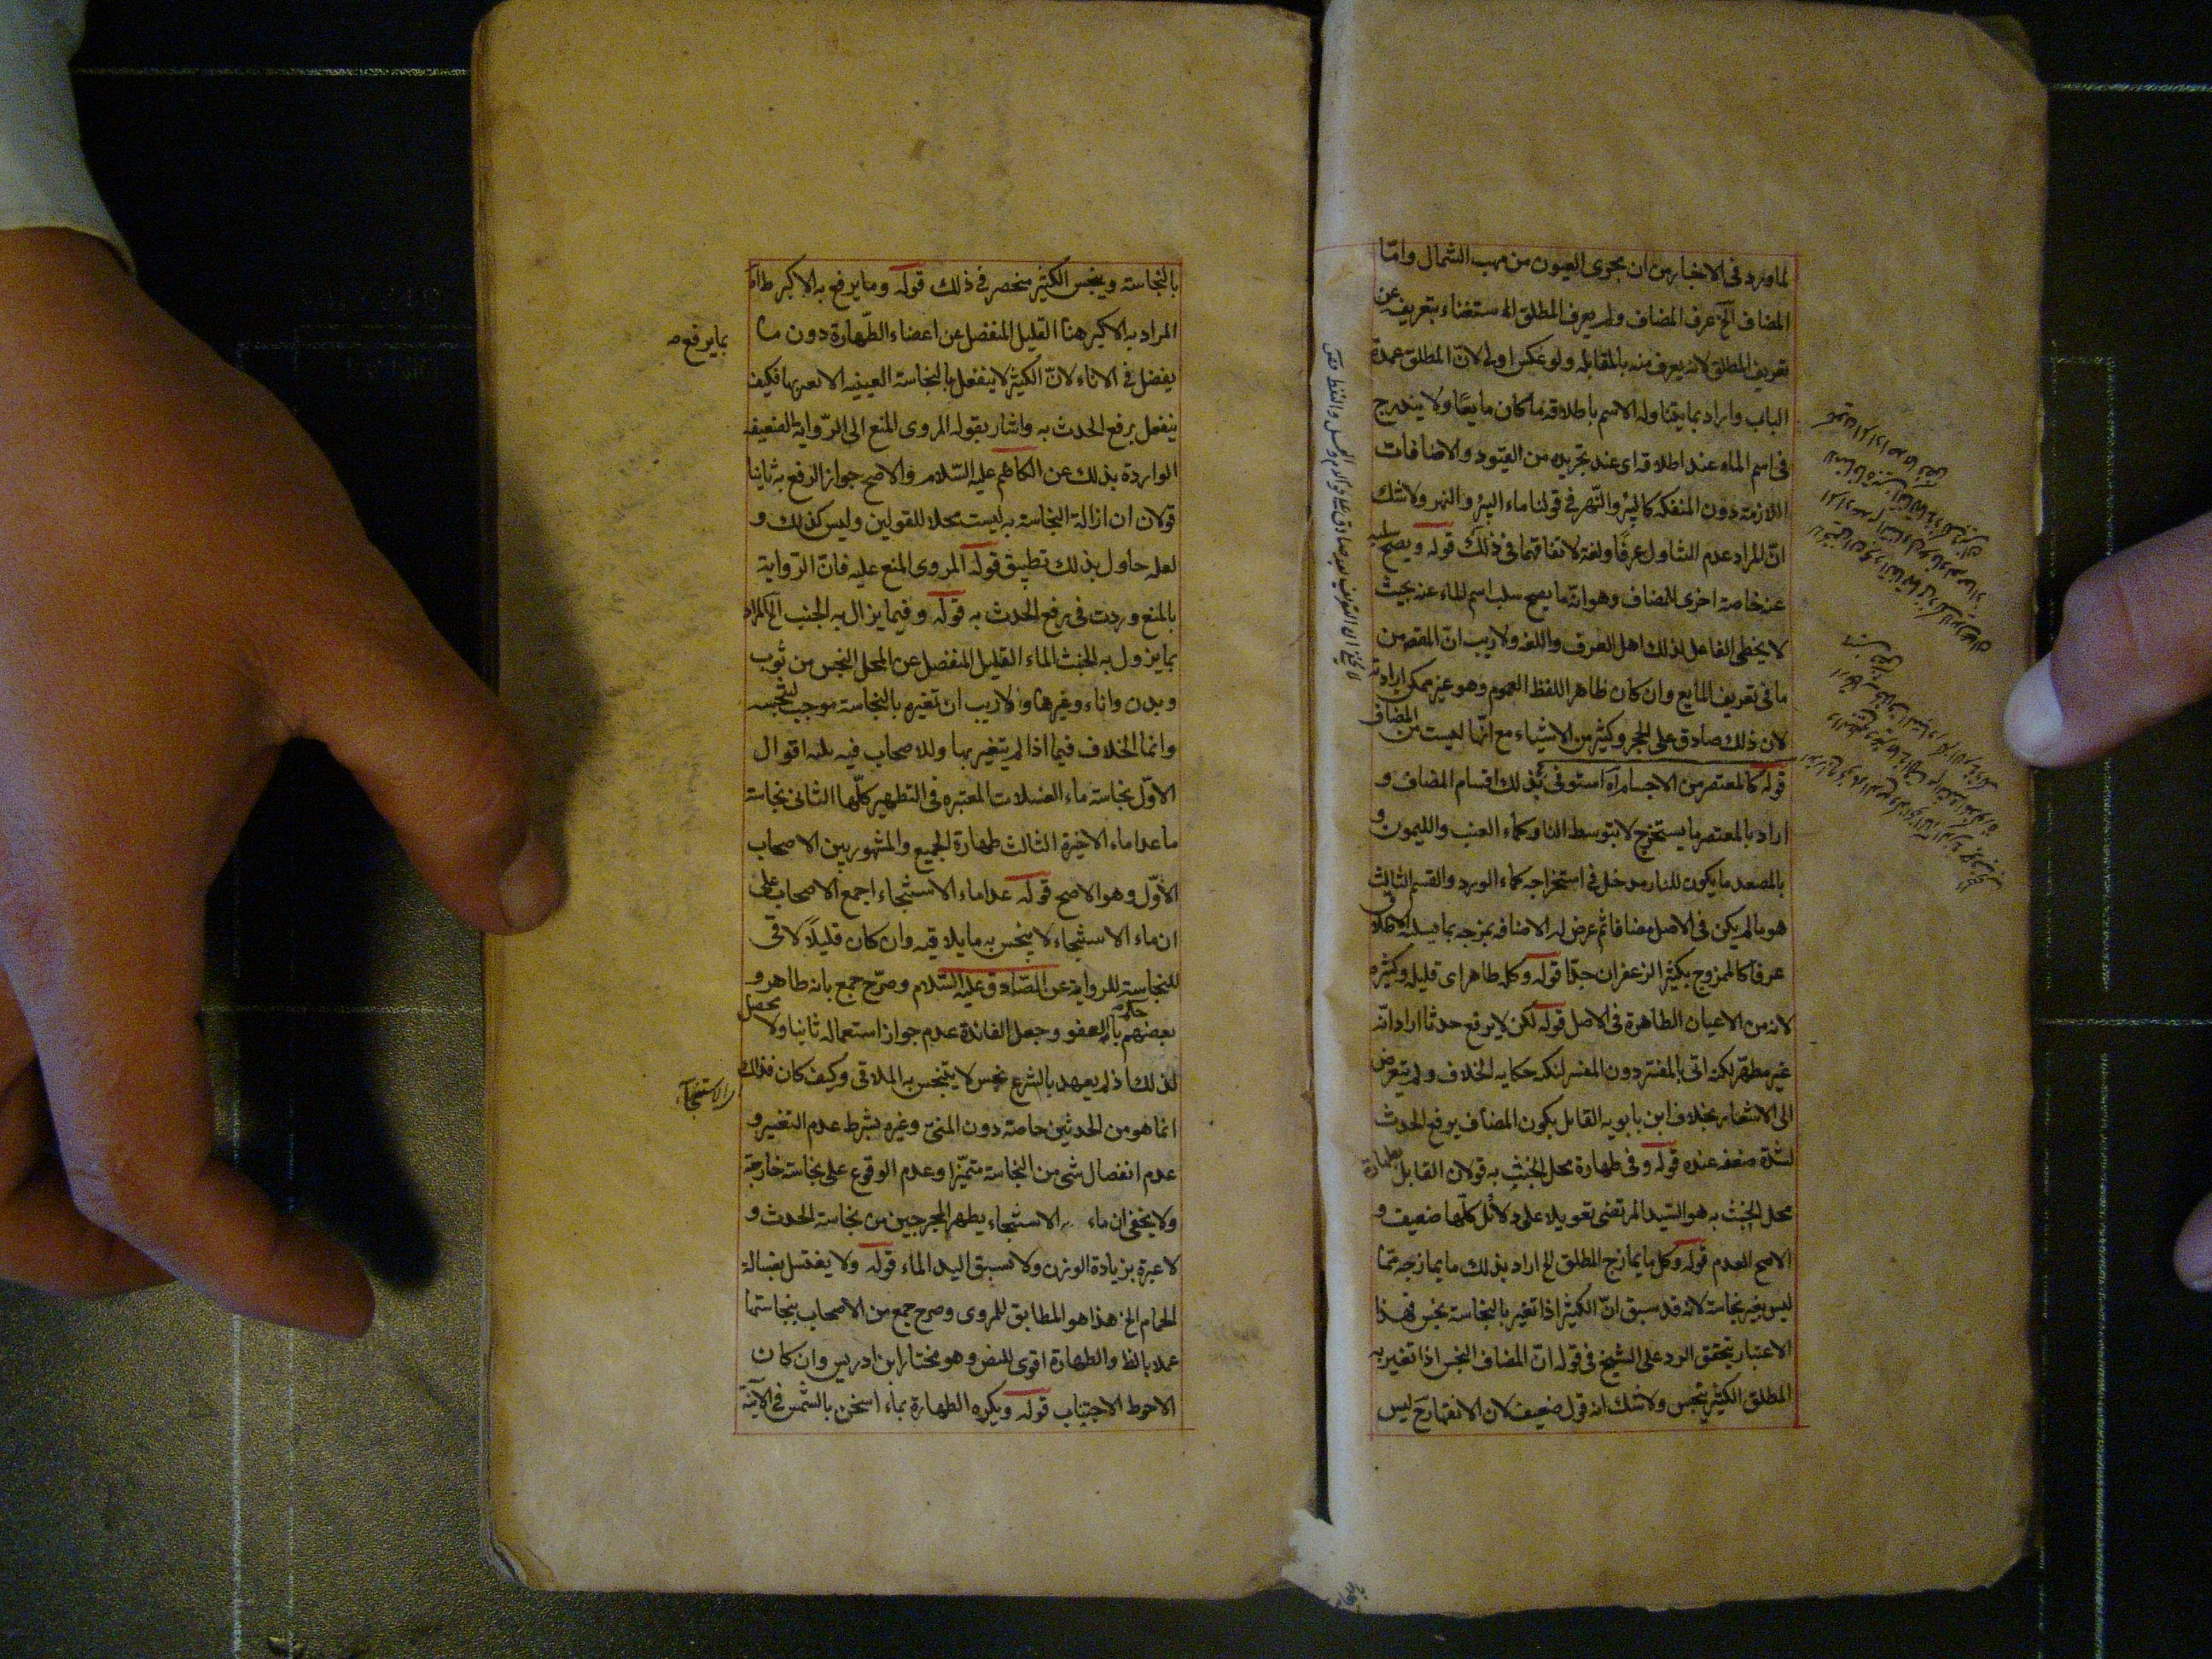 لما ورد في الاخبار من ان مجرى العيون من مهب الشمال وامّا
المضاف الخ عرف المضاف ولم يعرف المطلق استغناء بتعريفه عن
تعريف المطلق لانه يعرف منه بالمقابله ولو عكس اولى لانّ المطلق عمدة
الباب واراد بما يتناوله الاسم باطلاقه ما كان مايعًا ولا يندرج
في اسم الماء عند اطلاقه اى عند تجريده من القيود والاضافات
اللازمة دون المنفكه كالبئر والنّهر في قولنا ماء البئر والنهر ولا شك
انّ المراد عدم التناول عرفًا ولغة لاتفاقهما في ذلك قوله ويصح سلبه
عنه خاصة اخرى للمضاف وهو انّه ما يصح سلب اسم الماء عنه بحيث
لا يخطى الفاعل لذلك اهل العرف واللغه ولا ريب انّ المقصود من
ما في تعريف المايع وان كان ظاهر اللفظ العموم وهو غير ممكن ارادته
لان ذلك صادق على الحجر وكثير من الاشياء مع انّها ليست من المضاف
قوله كالمعتصر من الاجسام اه استوفى بذلك اقسام المضاف و
اراد بالمعتصر ما يستخرج لا بتوسط النار كماء العنب والليمون و
بالمصعد ما يكون للنار مدخل في استخراجه كماء الورد والقسم الثالث
هو ما لم يكن في الاصل مضافا ثم عرض له الاضافه بمزجه بما يسلبه الاطلاق
عرفا كالممزوج بكثير الزعفران جدّا قوله وكل طاهر اى قليله وكثيره
لانه من الاعيان الطاهرة في الاصل قوله لكن لا يرفع حدثا اراد انّه
غير مطهّر لكن اتى بالمفسّر دون المفسر لنكه حكايه الخلاف ولم يتعرض
الى الاشعار بخلاف ابن بابويه القايل بكون المضاف يرفع الحدث
لشدّة ضعفه عنده قوله وفي طهارة محل الخبث به قولان القايل بطهارة
محل الخبث به هو السّيد المرتضى تعويلا على دلائل كلّها ضعيف و
الاصح العدم قوله وكل ما يمازج المطلق الخ اراد بذلك ما يمازجه ممّا
ليس بغير نجاسة لانه قد سبق انّ الكثير اذا تغير بالنجاسة نجس فهذا
الاعتبار يتحقق الرد على الشيخ في قوله انّ المضاف النجس اذا تغير به
المطلق الكثير ينجس ولا شك انه قول ضعيف لان الانقهار ح ليس
بالنجاسته وينجس الكثير منحصر في ذلك قوله وما يرفع به الاكبر طاهر
المراد به الاكبر هنا القليل المنفصل عن اعضاء الطّهارة دون ما
بما يرفع ص
يفضل في الاناء لانّ الكثير لا ينفعل بالنجاسة العينيه الا بغيرها فكيف
ينفعل برفع الحدث به واشار بقوله المروى المنع الى الرّواية الضعيفه
الواردة بذلك عن الكاظم عليه السّلام والاصح جواز الرفع به ثانيا
قولان ان ازالة النجاسة به ليست محلا للقولين وليس كذلك و
لعله حاول بذلك تطبيق قوله المروى المنع عليه فانّ الرّواية
بالمنع وردت في رفع الحدث به قوله وفيما يزال به الخبث الخ المراد
بما يزول به الخبث الماء القليل المنفصل عن المحل النجس من ثوب
وبدن واناء وغيرها ولا ريب ان تغيره بالنجاسة موجب لتنجيسه
وانما الخلاف فيما اذا لم يتغير بها وللاصحاب فيه ثلثه اقوال
الاوّل نجاسة ماء الغسلات المعتبره في التطهير كلّها الثاني نجاسة
ما عدا ماء الاخيرة الثالث طهارة الجميع والمشهور بين الاصحاب
الاوّل وهو الاصح قوله عدا ماء الاستنجاء اجمع الاصحاب على
ان ماء الاستنجاء لا ينجس به ما يلاقيه وان كان قليلاً لاقى
للنجاسة للرواية عن الصّادق عليه السّلام وصرّح جمع بانه طاهر و
بعضهم بالعفو وجعل الفائدة عدم جواز استعماله ثانيا ولا محصل
لذلك اذ لم يعهد بالشرع نجس لا يتنجس به الملاقى وكيف كان فذلك
والاستنجاء
انما هو من الحدثين خاصة دون المنى وغيره بشرط عدم التغيير و
عدم انفصال شى من النجاسة متميّزا وعدم الوقوع على نجاسة خارجة
ولا يخفى ان ماء الاستنجاء يطهر المخرجين من نجاسة الحدث و
لا عبرة بزيادة الوزن ولا تسبق اليد الماء قوله ولا يغتسل بغسالة
الحمام الخ هذا هو المطابق للمروى وصرح جمع من الاصحاب بنجاستها
عملا بالظ والطهارة اقوى للنص وهو مختار ابن ادريس وان كان
الاحوط الاجتناب قوله ويكره الطهارة بماء اسخن بالشمس في الآنية